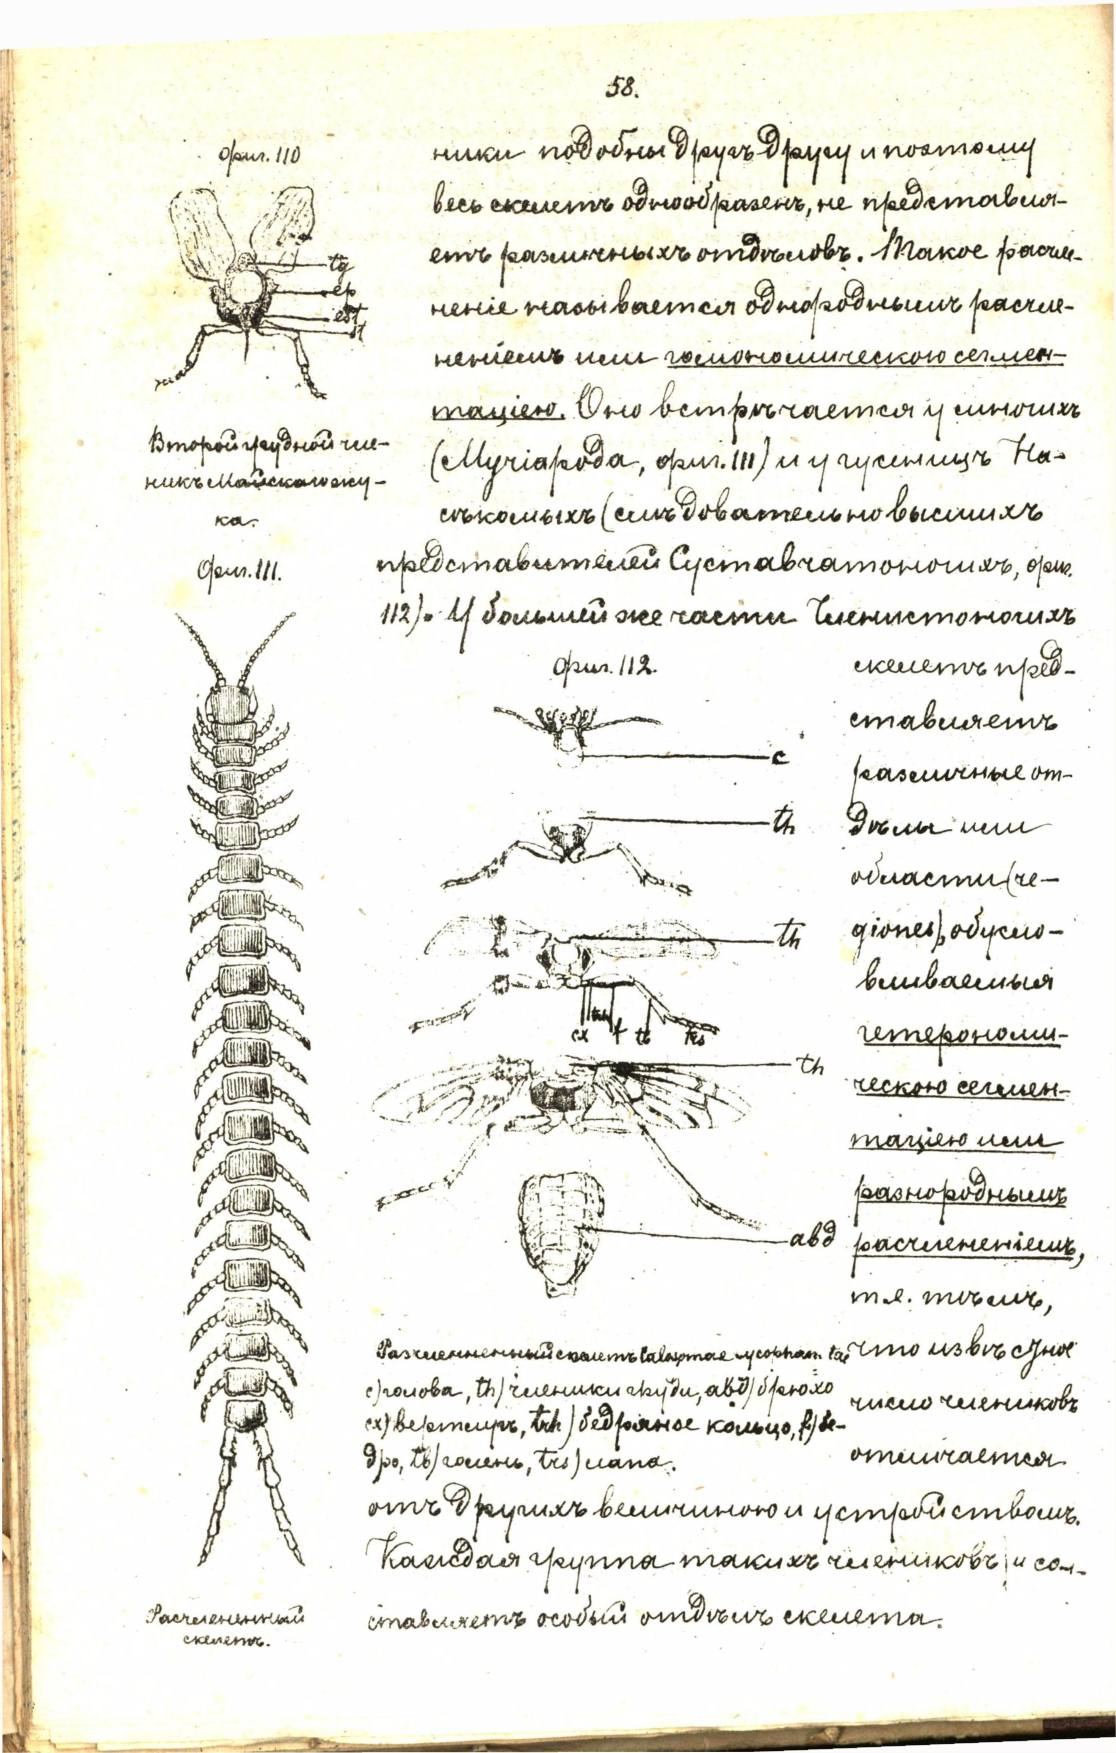 58.
фиг. 110
tg
ep
est
st
Второй грудной чле-
никъ Майскаго жу-
ка.
Фиг. 111.
Расчлененный
скелетъ.
ники подобны другъ другу и поэтому
весь скелетъ однообразенъ, не представля-
етъ различныхъ отдѣловъ. Такое расчле-
неніе называется однороднымъ расчле-
неніемъ или гомономическою сегмен-
таціею. Оно встрѣчается у многихъ
(Myriapoda, фиг. 111) и у гусеницъ На-
сѣкомыхъ (слѣдовательно высшихъ
представителей Суставчатоногихъ, фиг.
112). У большей же части Членистоногихъ
фиг. 112.
c
th
th
cx
trh
f
tb
trs
th
abd
Расчлененный скелетъ
c) голова, th) членики груди, abd) брюхо
cx) вертлугъ, trh) бедряное кольцо, f) бе-
дро, tb) голень, trs) лапа.
скелетъ пред-
ставляетъ
различные от-
дѣлы или
области (re-
giones), обусло-
вливаемыя
гетерономи-
ческою сегмен-
таціею или
разнороднымъ
расчлененіемъ,
т.е. тѣмъ,
что извѣстное
число члениковъ
отличается
отъ другихъ величиною и устройствомъ.
Каждая группа такихъ члениковъ и со-
ставляетъ особый отдѣлъ скелета.